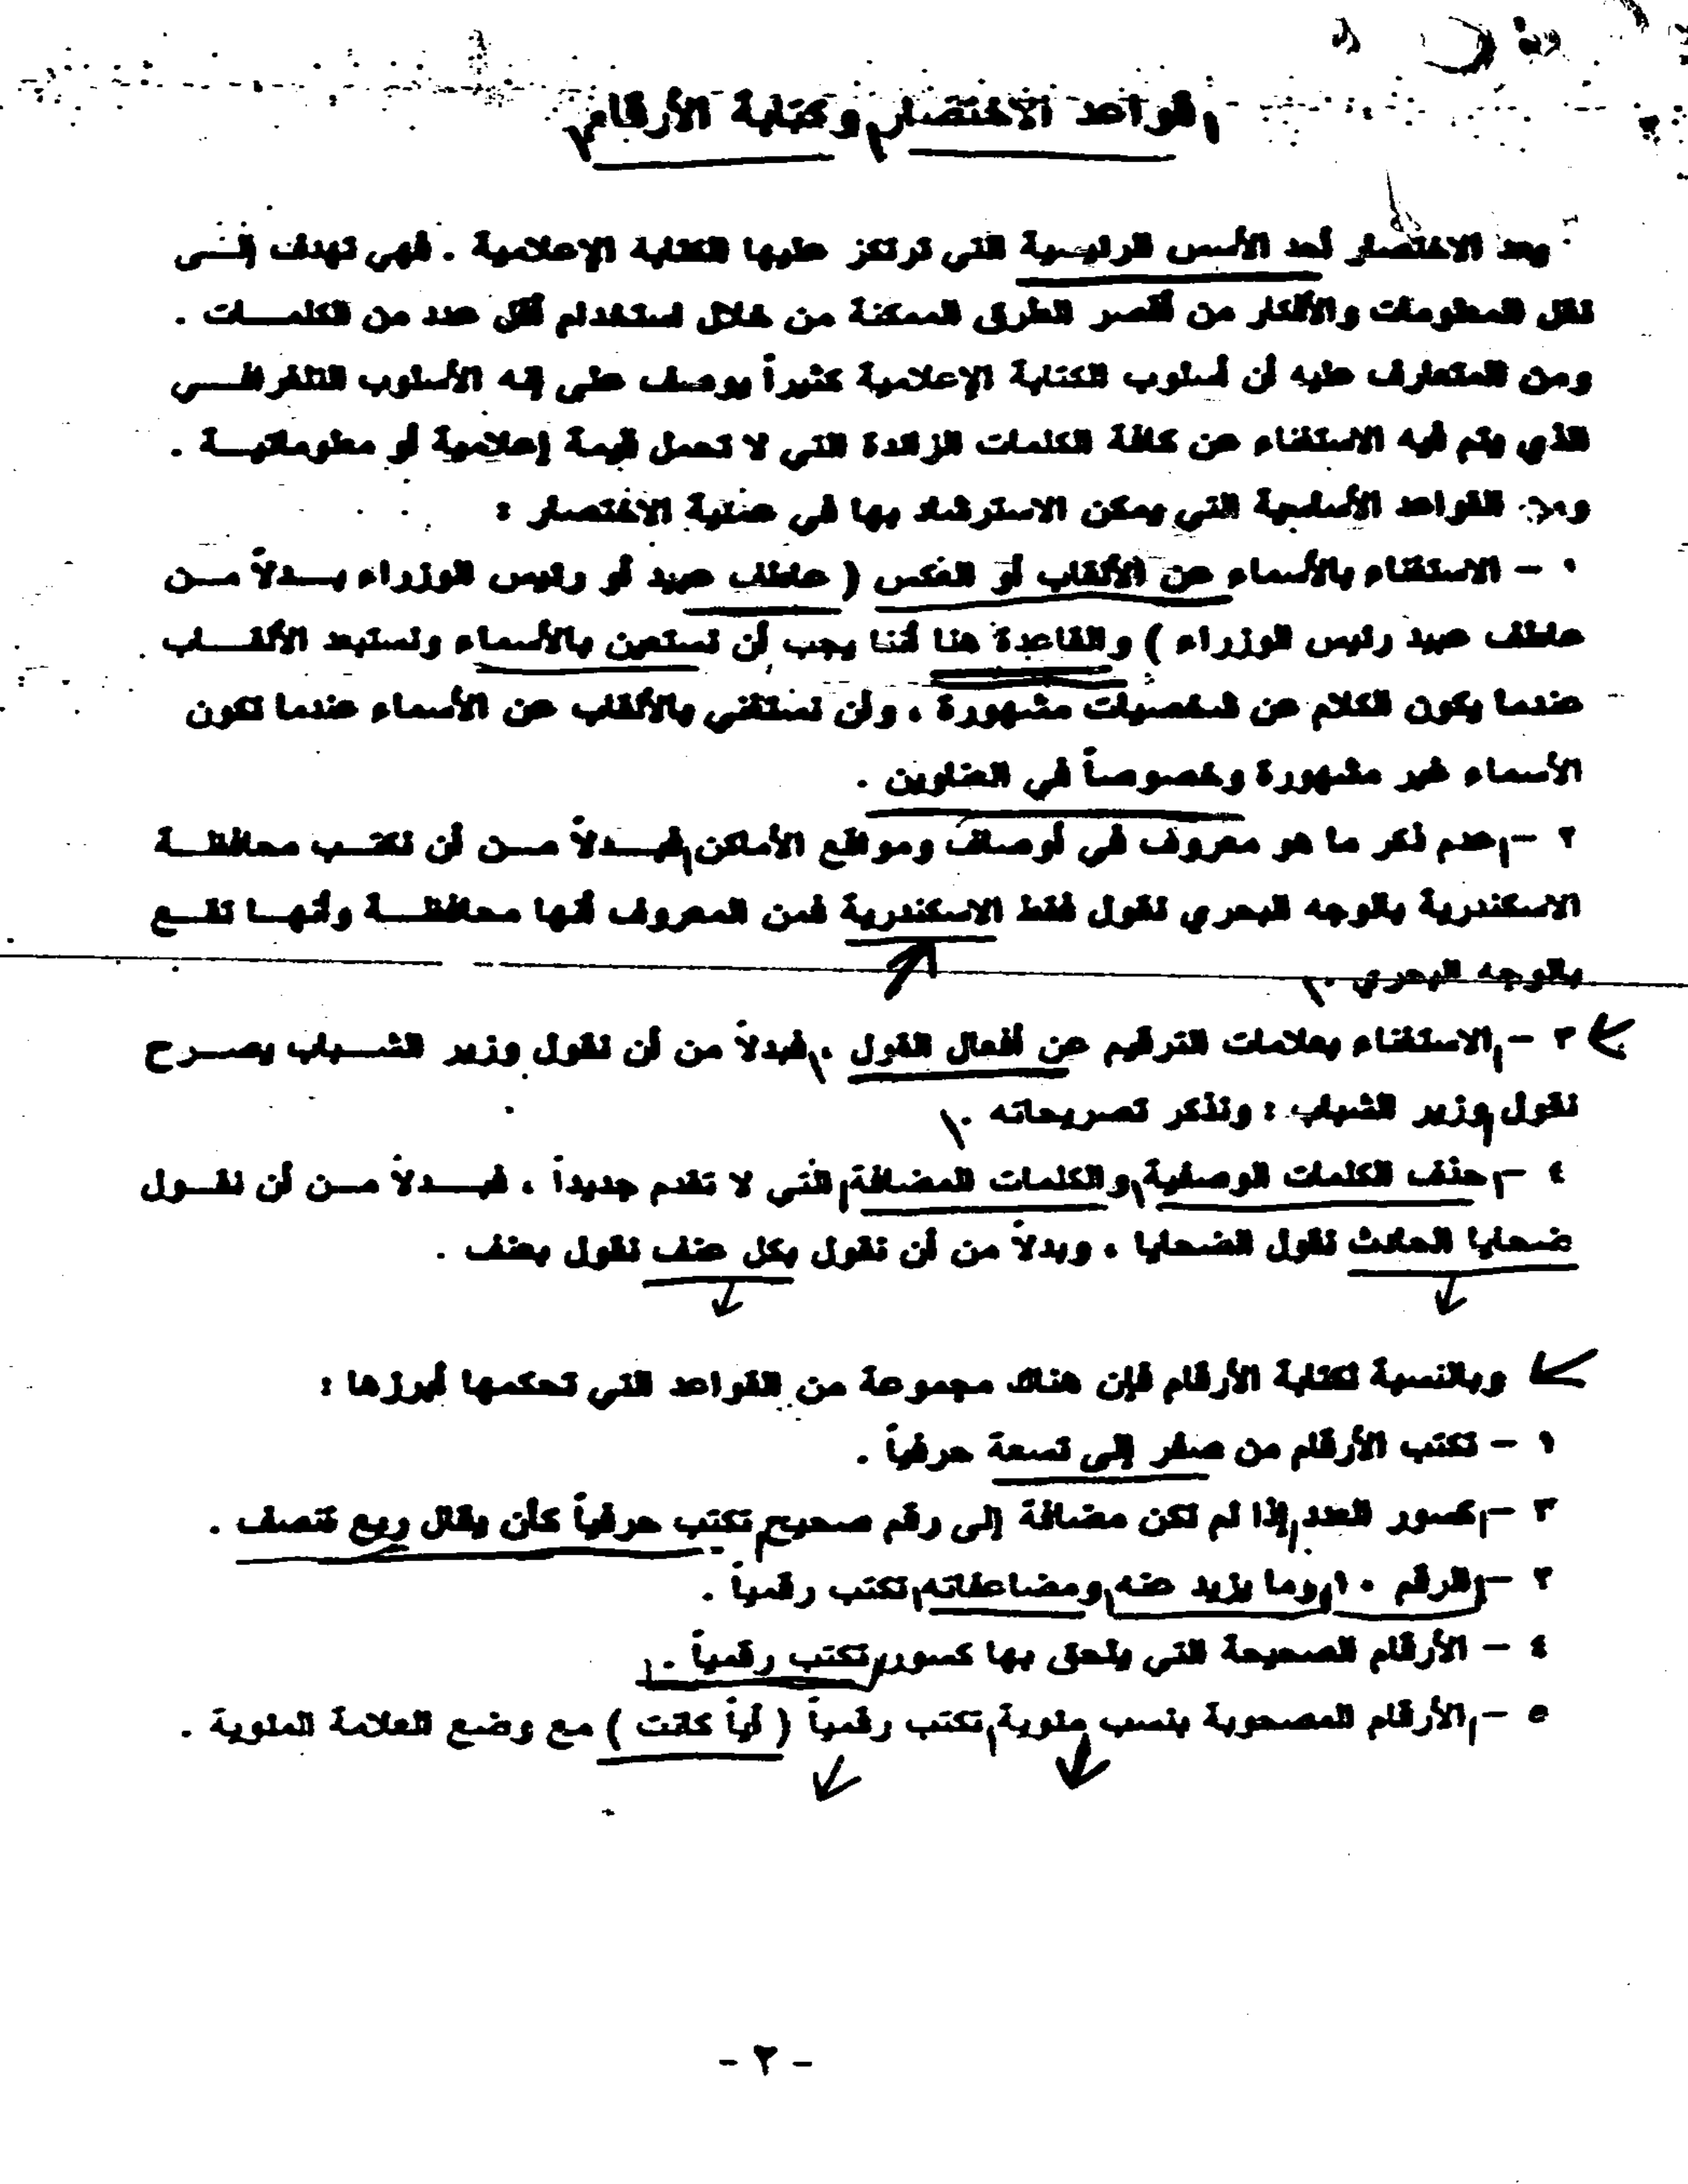 قواعد الاختصار وكتابة الأرقام
يعد الاختصار أحد الأسس الرئيسية التي ترتكز عليها الكتابة الإعلامية . فهي تهدف إلـــى
نقل المعلومات والأفكار من أقصر الطرق الممكنة من خلال استخدام أقل عدد من الكلمـــات .
ومن المتعارف عليه أن أسلوب الكتابة الإعلامية كثيراً يوصف على إنه الأسلوب التلغرافـــي
الذي يتم فيه الاستغناء عن كافة الكلمات الزائدة التي لا تحمل قيمة إعلامية أو معلوماتيـــة .
ومن القواعد الأساسية التي يمكن الاسترشاد بها في عملية الاختصار :
١ – الاستغناء بالأسماء عن الألقاب أو العكس ( عاطف عبيد أو رئيس الوزراء بـــدلاً مـــن
عاطف عبيد رئيس الوزراء ) والقاعدة هنا أننا يجب أن نستعين بالأسماء ونستبعد الألقـــاب
عندما يكون الكلام عن شخصيات مشهورة ، وأن نستغني بالألقاب عن الأسماء عندما تكون
الأسماء غير مشهورة وخصوصاً في العناوين .
٢ – عدم ذكر ما هو معروف في أوصاف ومواقع الأماكن فبـــدلاً مـــن أن نكتـــب محافظـــة
الاسكندرية بالوجه البحري نقول فقط الاسكندرية فمن المعروف أنها محافظـــة وأنهـــا تقـــع
بالوجه البحري .
٣ – الاستغناء بعلامات الترقيم عن أفعال القول ، فبدلاً من أن نقول وزير الشـــباب يصـــرح
نقول وزير الشباب : ونذكر تصريحاته .
٤ – حذف الكلمات الوصفية والكلمات المضافة التي لا تقدم جديداً ، فبـــدلاً مـــن أن نقـــول
ضحايا الحادث نقول الضحايا ، وبدلاً من أن نقول بكل عنف نقول بعنف .
وبالنسبة لكتابة الأرقام فإن هناك مجموعة من القواعد التي تحكمها أبرزها :
١ – تكتب الأرقام من صفر إلى تسعة حرفياً .
٢ – كسور العدد إذا لم تكن مضافة إلى رقم صحيح تكتب حرفياً كأن يقال ربع نصف .
٣ – الرقم ١٠ وما يزيد عنه ومضاعفاته تكتب رقمياً .
٤ – الأرقام الصحيحة التي يلحق بها كسور تكتب رقمياً .
٥ – الأرقام المصحوبة بنسب مئوية تكتب رقمياً ( أياً كانت ) مع وضع العلامة المئوية .
– ٢ –